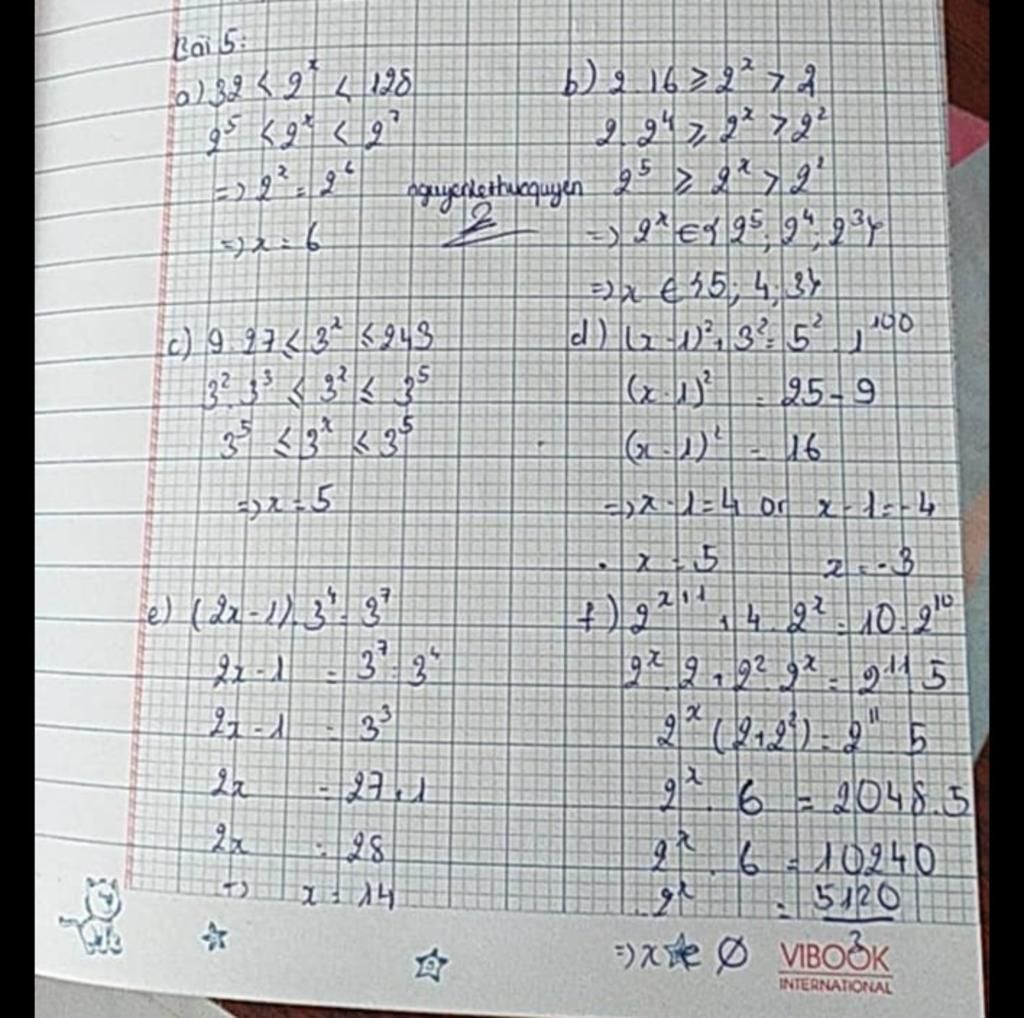 Bài 5:
a) 32 < 2^x < 128
2^5 < 2^x < 2^7
=> 2^x = 2^6
=> x = 6
nguyenlethucquyen
2
b) 2.16 ≥ 2^x > 2
2.2^4 ≥ 2^x > 2^2
2^5 ≥ 2^x > 2^2
=> 2^x ∈ {2^5; 2^4; 2^3}
=> x ∈ {5; 4; 3}
c) 9.27 ≤ 3^x ≤ 243
3^2.3^3 ≤ 3^x ≤ 3^5
3^5 ≤ 3^x ≤ 3^5
=> x = 5
d) (x-1)^2 + 3^2 = 5^2.1^100
(x-1)^2 = 25 - 9
(x-1)^2 = 16
=> x-1 = 4 or x-1 = -4
x = 5 x = -3
e) (2x-1).3^4 = 3^7
2x-1 = 3^7 : 3^4
2x-1 = 3^3
2x = 27+1
2x = 28
=> x = 14
f) 2^{x+1} + 4.2^x = 10.2^10
2^x.2 + 2^2.2^x = 2^11.5
2^x (2+2^2) = 2^11.5
2^x.6 = 2048.5
2^x.6 = 10240
2^x = 5120/3
=> x ∈ ∅
VIBOOK
INTERNATIONAL